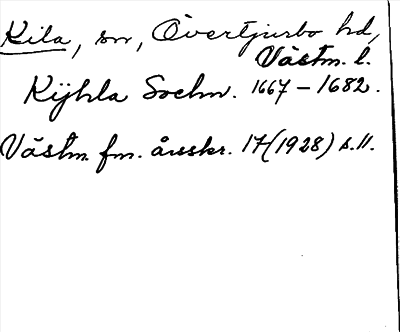 Kila, sn, Övertjurbo hd,
Västm. l.
Kijhla Sochn. 1667-1682.
Västm. fm. årsskr. 17(1928) s.11.